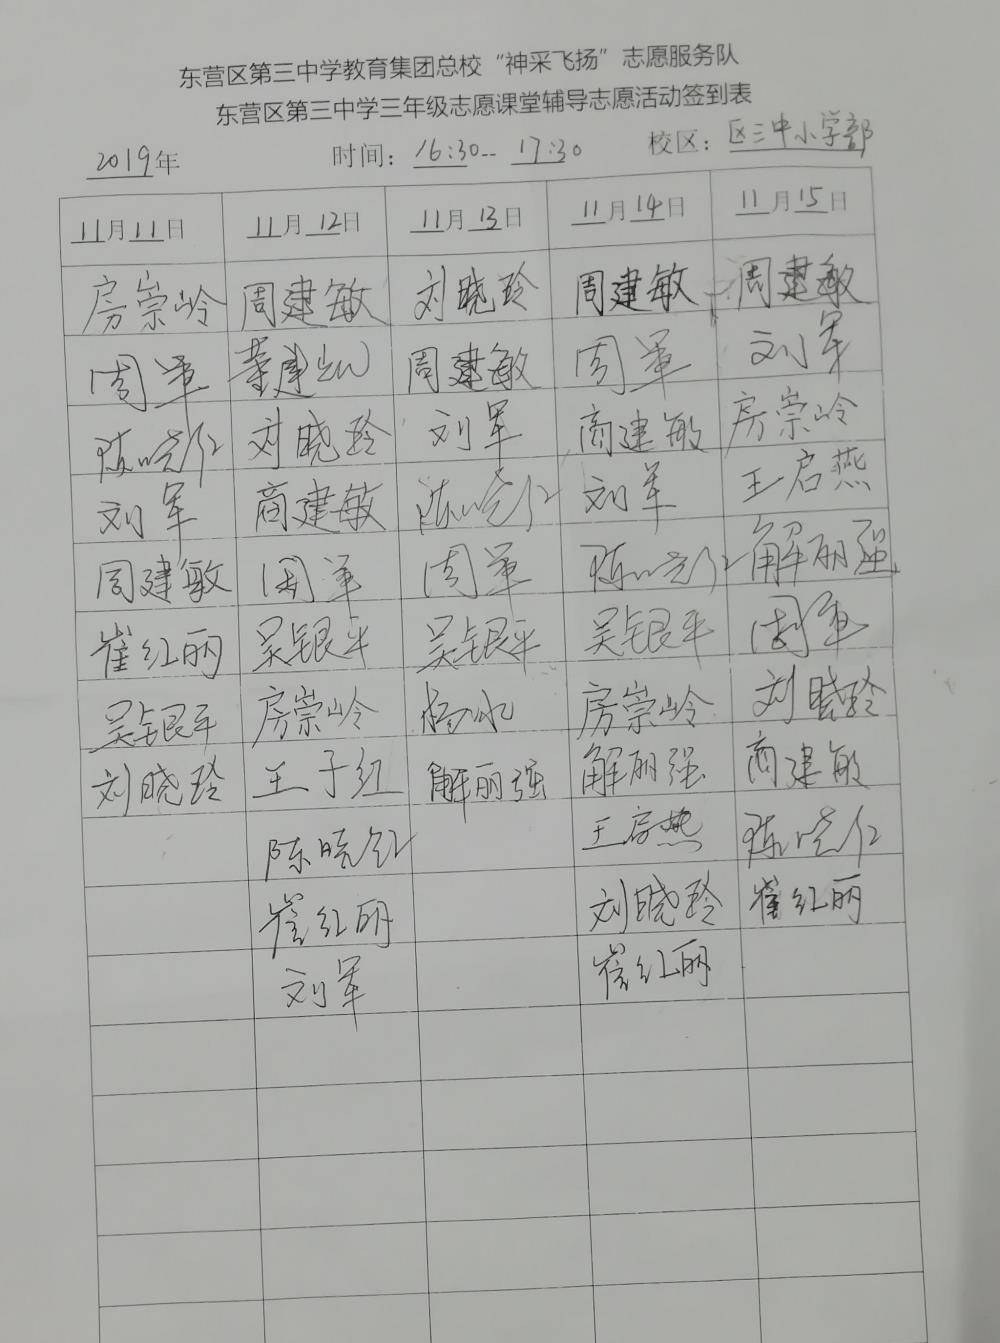 东营区第三中学教育集团总校“神采飞扬”志愿服务队
东营区第三中学三年级志愿课堂辅导志愿活动签到表
2019年 时间：16:30--17:30 校区：区三中小学部
11月11日 11月12日 11月13日 11月14日 11月15日
房崇岭 周建敏 刘晓玲 周建敏 周建敏
周军 周建敏 周军 刘军
陈晓红 刘晓玲 刘军 商建敏 房崇岭
刘军 商建敏 陈晓红 刘军 王启燕
周建敏 周军 周军 陈晓红 解丽强
崔红丽 吴银平 吴银平 吴银平 周军
吴银平 房崇岭 杨冰 房崇岭 刘晓玲
刘晓玲 王子红 解丽强 解丽强 商建敏
陈晓红 王启燕 陈晓红
崔红丽 刘晓玲 崔红丽
刘军 崔红丽